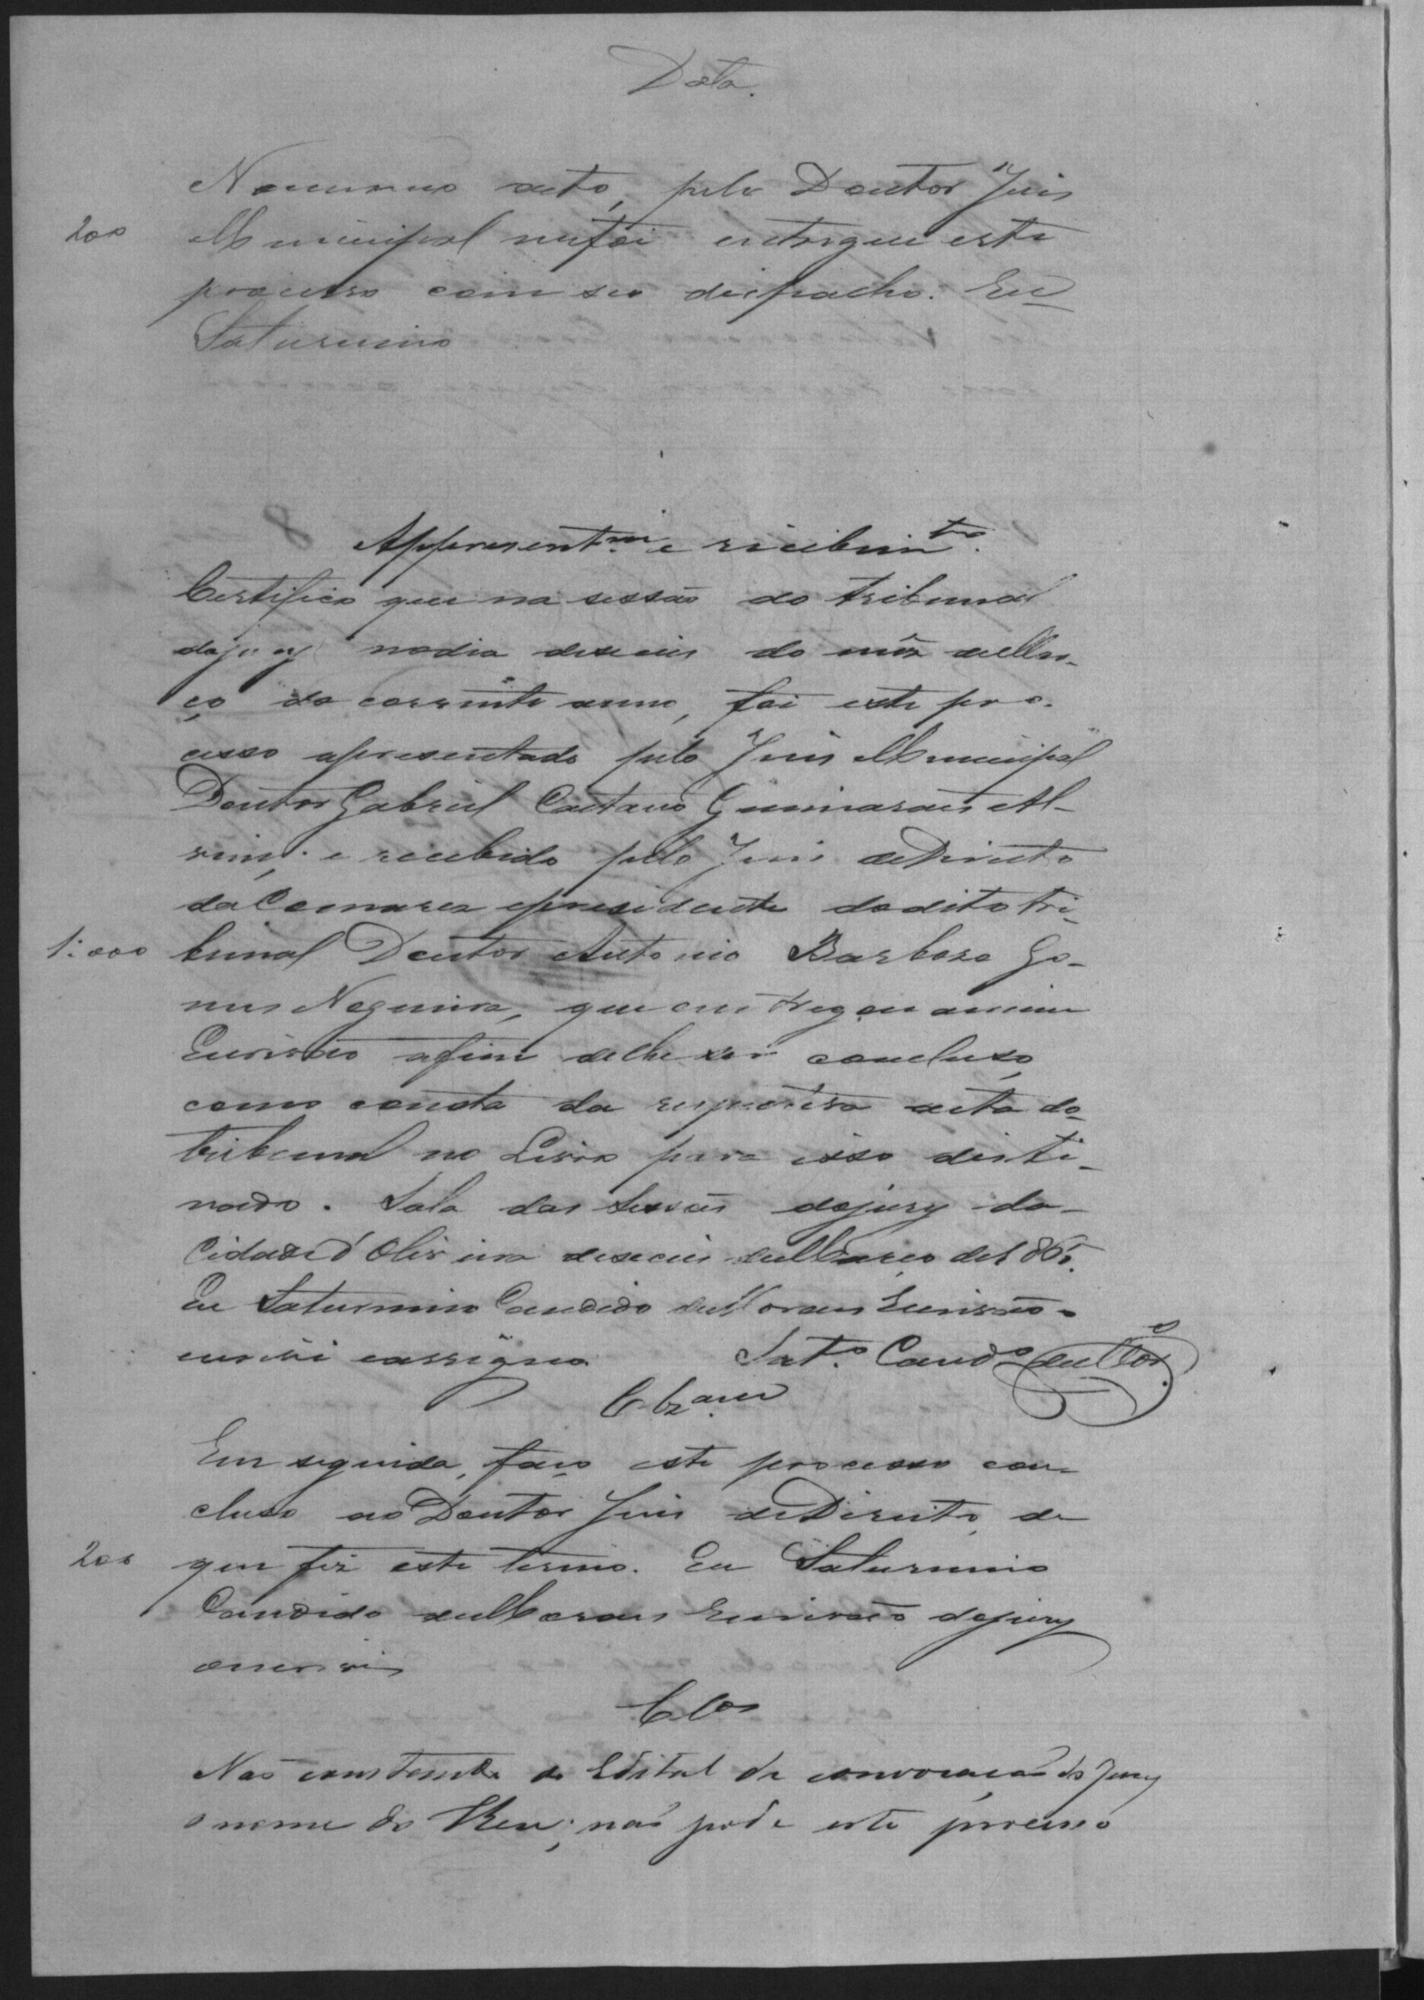 Data.
No mesmo acto, pelo Doutor Juis
200 Municipal me foi entregue este
processo com seo despacho. Eu
Saturnino
Appresent.mto e recebim.to
Certifico que na sessão do tribunal
do jury no dia deseceis do mês de Mar-
ço do corrente anno, foi este pro-
cesso apresentado pelo Juis Municipal
Doutor Gabriel Caetano Guimarães Al-
vim, e recebido pelo Juis de Direito
da Comarca e presidente do dito tri-
1:000 bunal Doutor Antonio Barbosa Go-
mes Nogueira, que entregou a mim
Escrivão afim de lhe ser concluso,
como consta da respectiva acta do
tribunal no Livro para isso desti-
nado. Sala das Sessões do jury da
Cidade d'Oliveira deseceis de Março de
Eu Saturnino Candido de Moraes Escrivão
escrevi e assigno. Sat.o Cand.o de Mor.
Clzam
Em seguida, faço este processo con-
cluso ao Doutor Juis de Direito, de
200 que fiz este termo. Eu Saturnino
Candido de Moraes Escrivão do jury
o escrevi
Clos
Não constando do Edital de convocação do Jury
o nome do Reu; não pode este processo